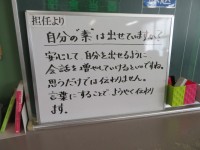 担任より
自分の"素"は出せていますか?
安心して、自分を出せるように
会話を増やしていけるといいですね。
思うだけでは伝わりません。
言葉にすることでようやく伝わり
ます。